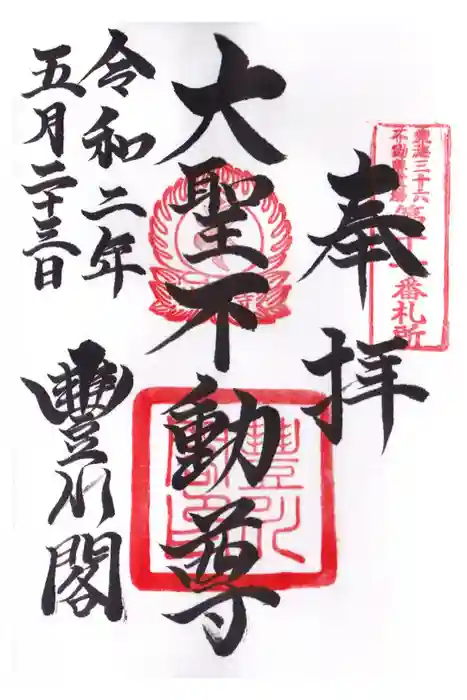 奉拝
東海三十六
不動尊霊場
番札所
大聖不動尊
令和二年
五月二十三日
豐川閣